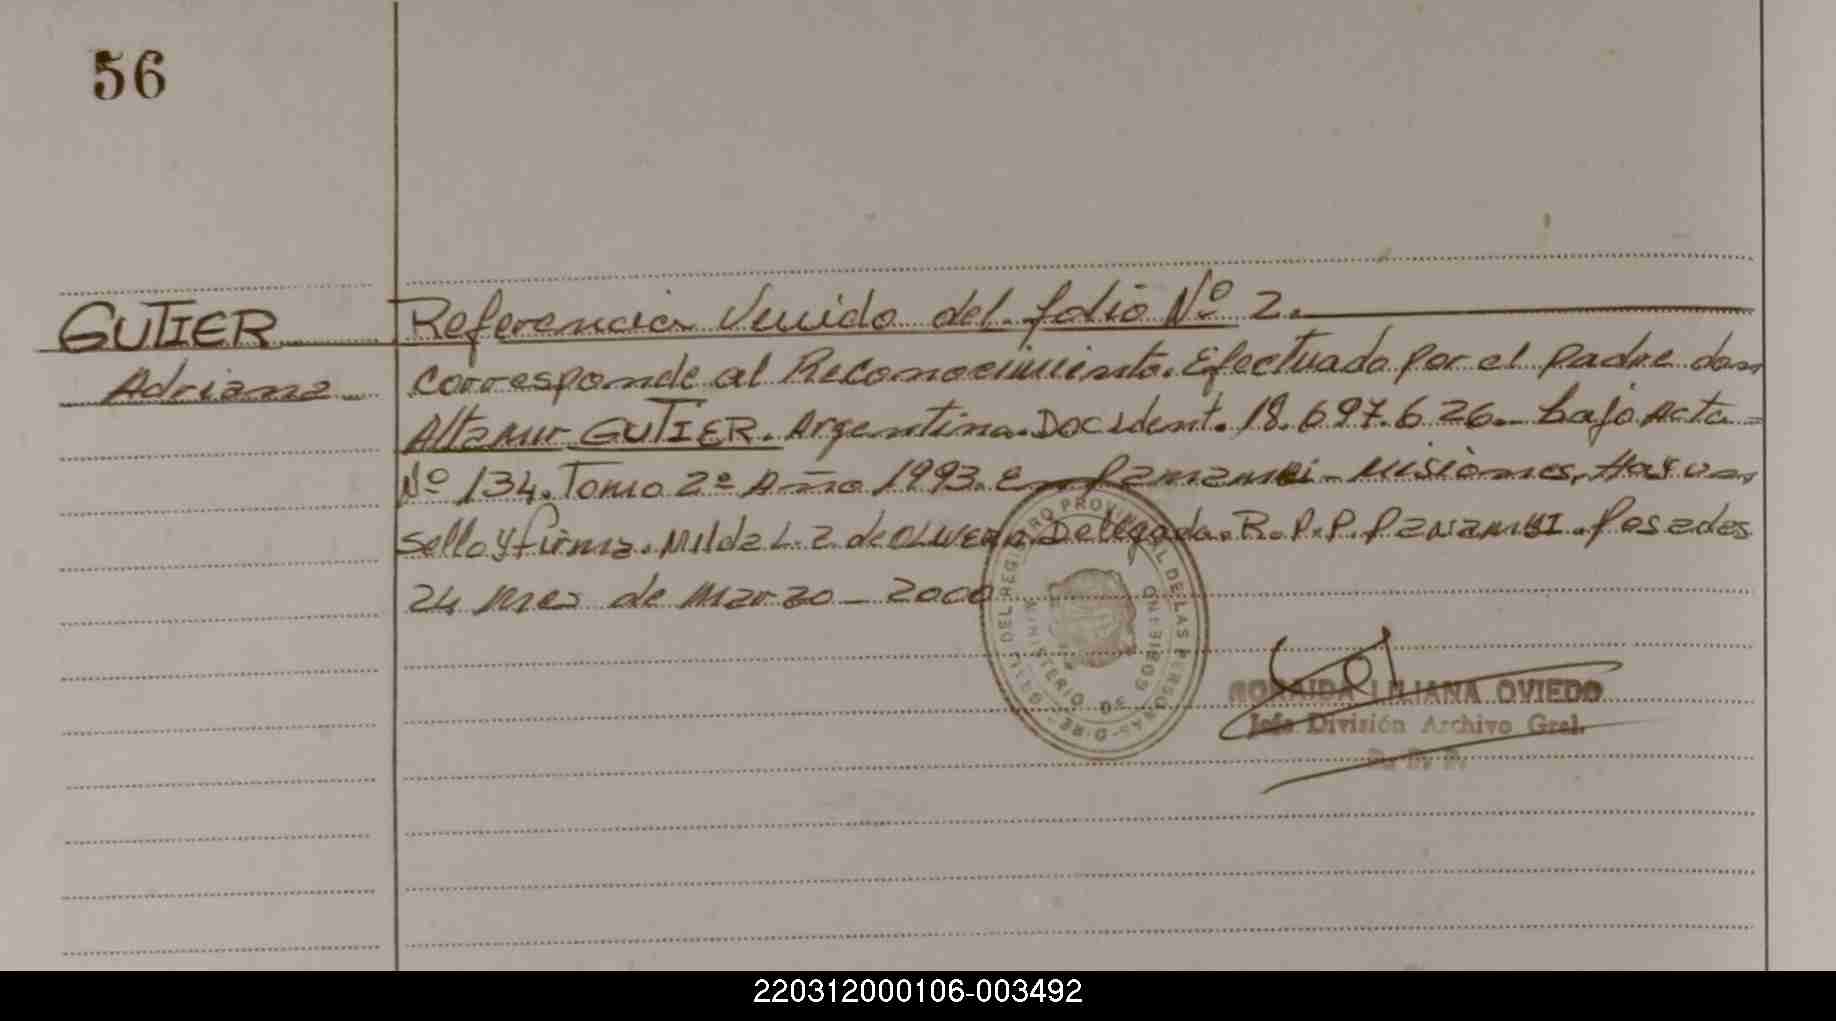 56
GUTIER
Adriana
Referencia Venido del folio Nº 2.
Corresponde al Reconocimiento. Efectuado por el padre don
Altamir GUTIER. Argentino. Doc. Ident. 18.697.626. bajo Acta
Nº 134. Tomo 2º Año 1993. En Panambi - Misiones. Hay un
sello y firma. Milda L. Z. de OLIVERA. Delegada. R.P.P. PANAMBI. Posadas
24 Mes de Marzo - 2000
REGISTRO PROVINCIAL DE LAS PERSONAS
MINISTERIO DE GOBIERNO
LILIANA OVIEDO
Jefe División Archivo Gral.
220312000106-003492